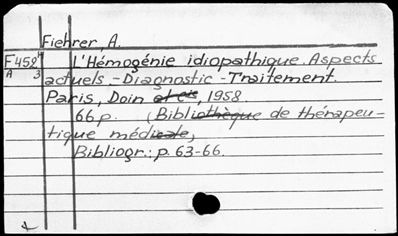 Fiehrer, A.
F452 L'Hémogénie idiopathique. Aspects
A 3 actuels. - Diagnostic - Traitement.
Paris, Doin et cie, 1958
66 p. (Bibliothèque de thérapeu-
tique médicale,
Bibliogr.: p. 63-66.